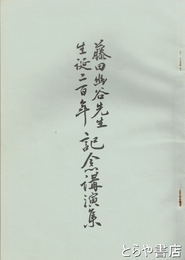 藤田幽谷先生
生誕二百年
記念講演集
古書
とらや書店